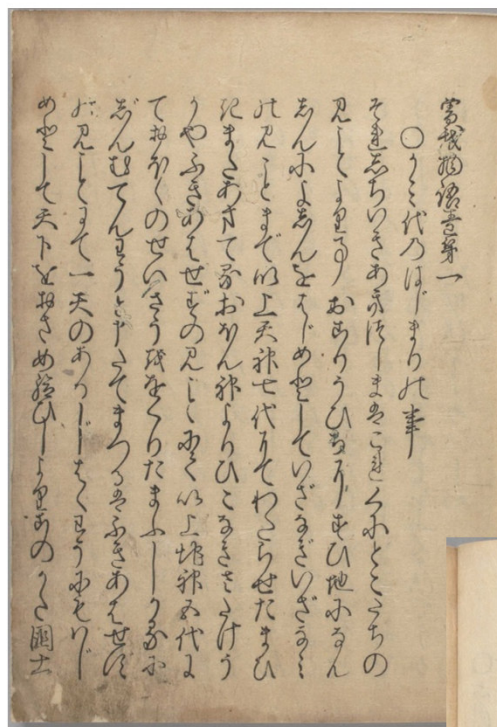 曽我物語巻第一
○かみ代のはじまりの事
それしちいきあきつしまはこれくにとこたちの
みことより事おこりうひぢにすひぢになん
しんによしんをはじめとしていざなぎいざなみ
のみことまで以上天神七代にてわたらせたまひ
きまたあまてるおほん神よりひこなぎさたけう
がやふきあはせずのみことまで以上地神五代に
ておほくのせいさうををくりたまふしかるに
じんむてんわうと申たてまつるはふきあはせず
のみことにて一天のあるじはくわうにもはじ
めとして天下をおさめ給ひしよりこのかた國土